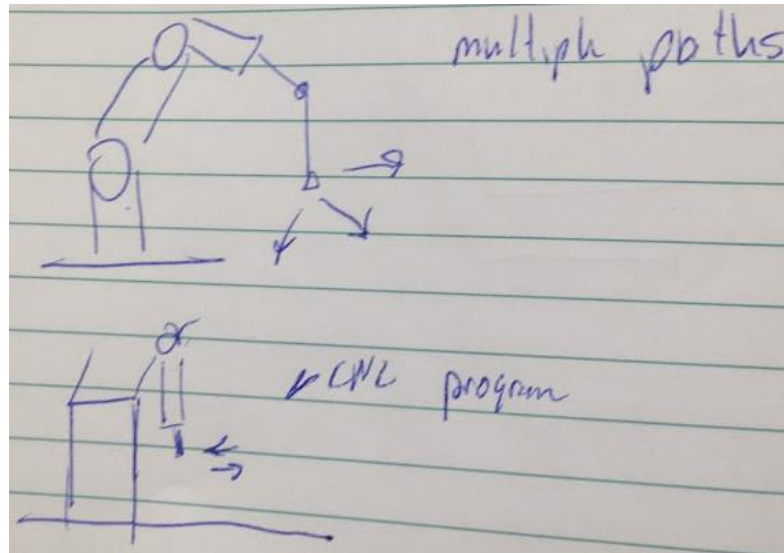 multiple paths
CNC program